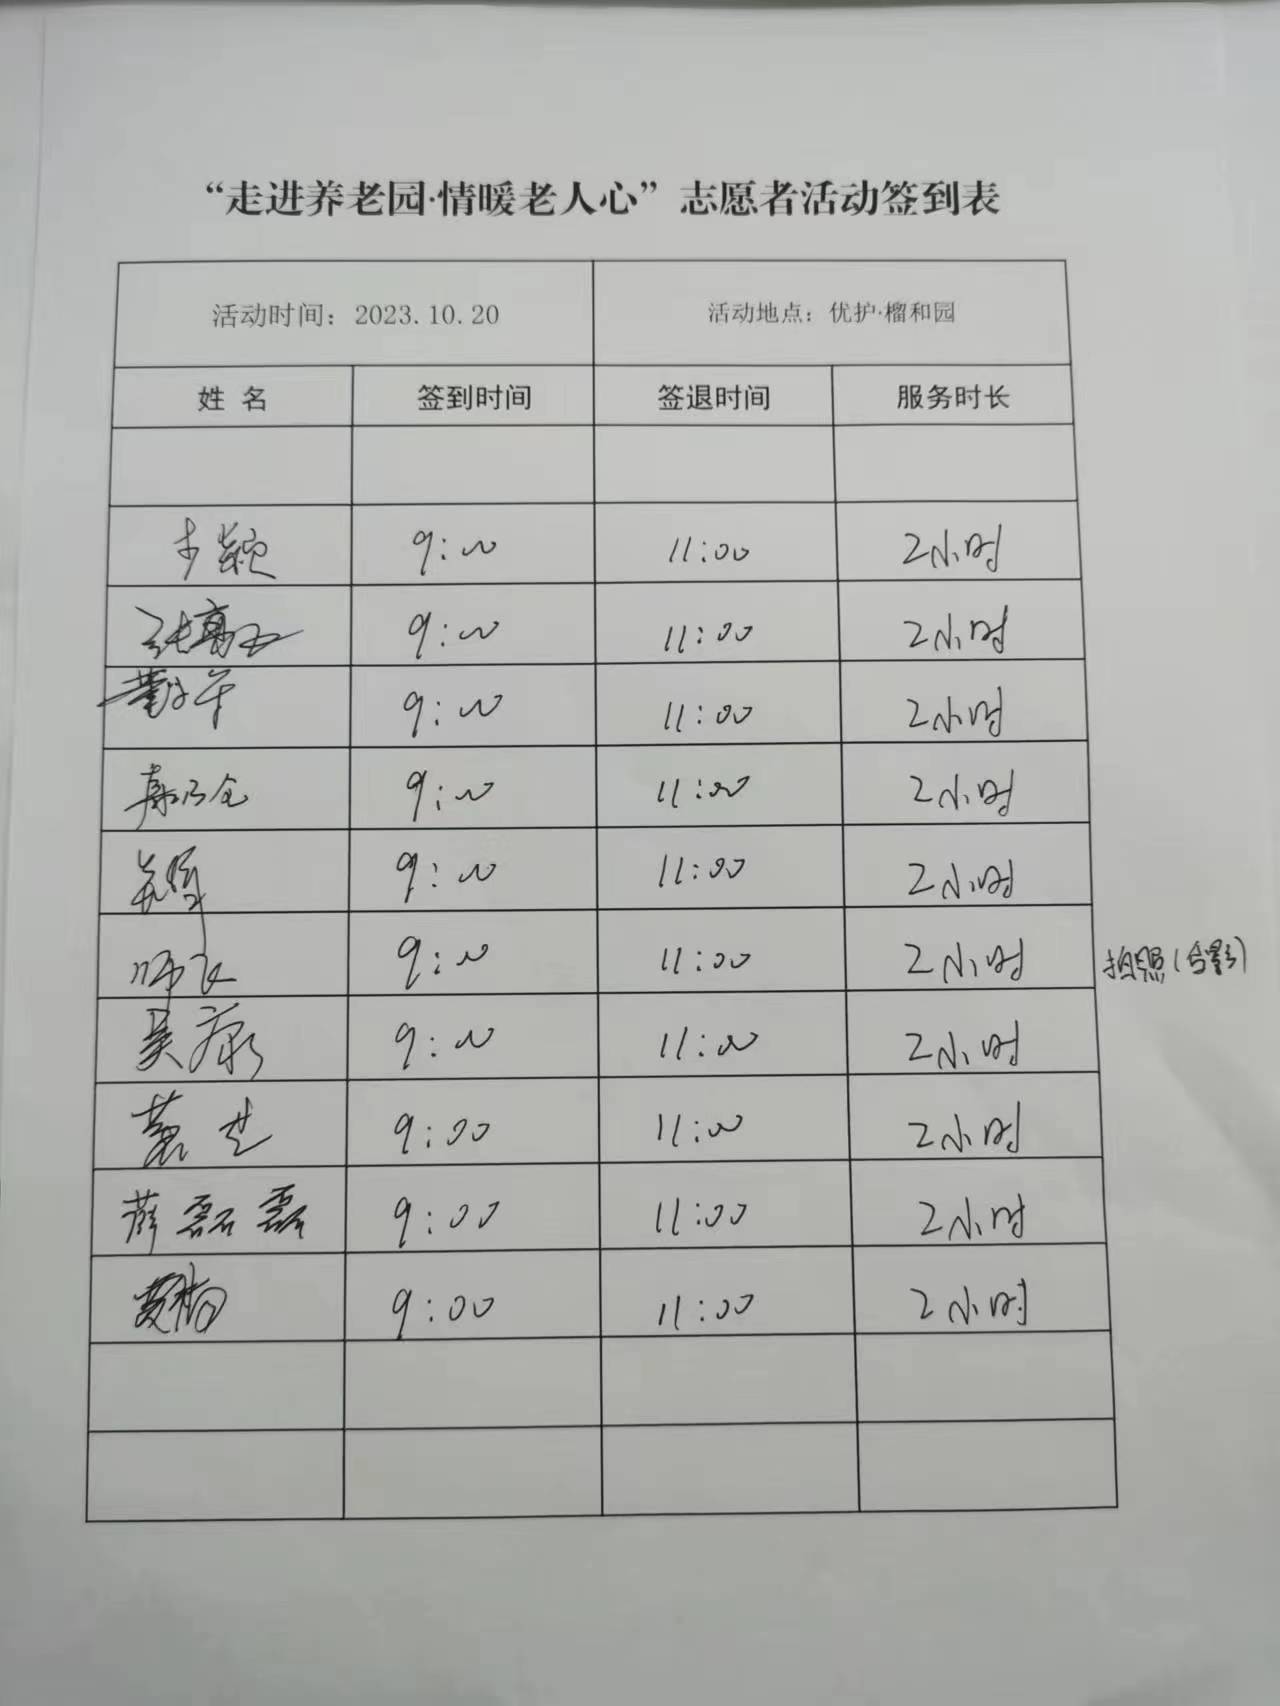 “走进养老园·情暖老人心”志愿者活动签到表
活动时间：2023.10.20 活动地点：优护·榴和园
姓 名 签到时间 签退时间 服务时长
9:00 11:00 2小时
9:00 11:00 2小时
9:00 11:00 2小时
9:00 11:00 2小时
9:00 11:00 2小时
9:00 11:00 2小时 拍照(合影)
吴康 9:00 11:00 2小时
9:00 11:00 2小时
薛磊磊 9:00 11:00 2小时
9:00 11:00 2小时